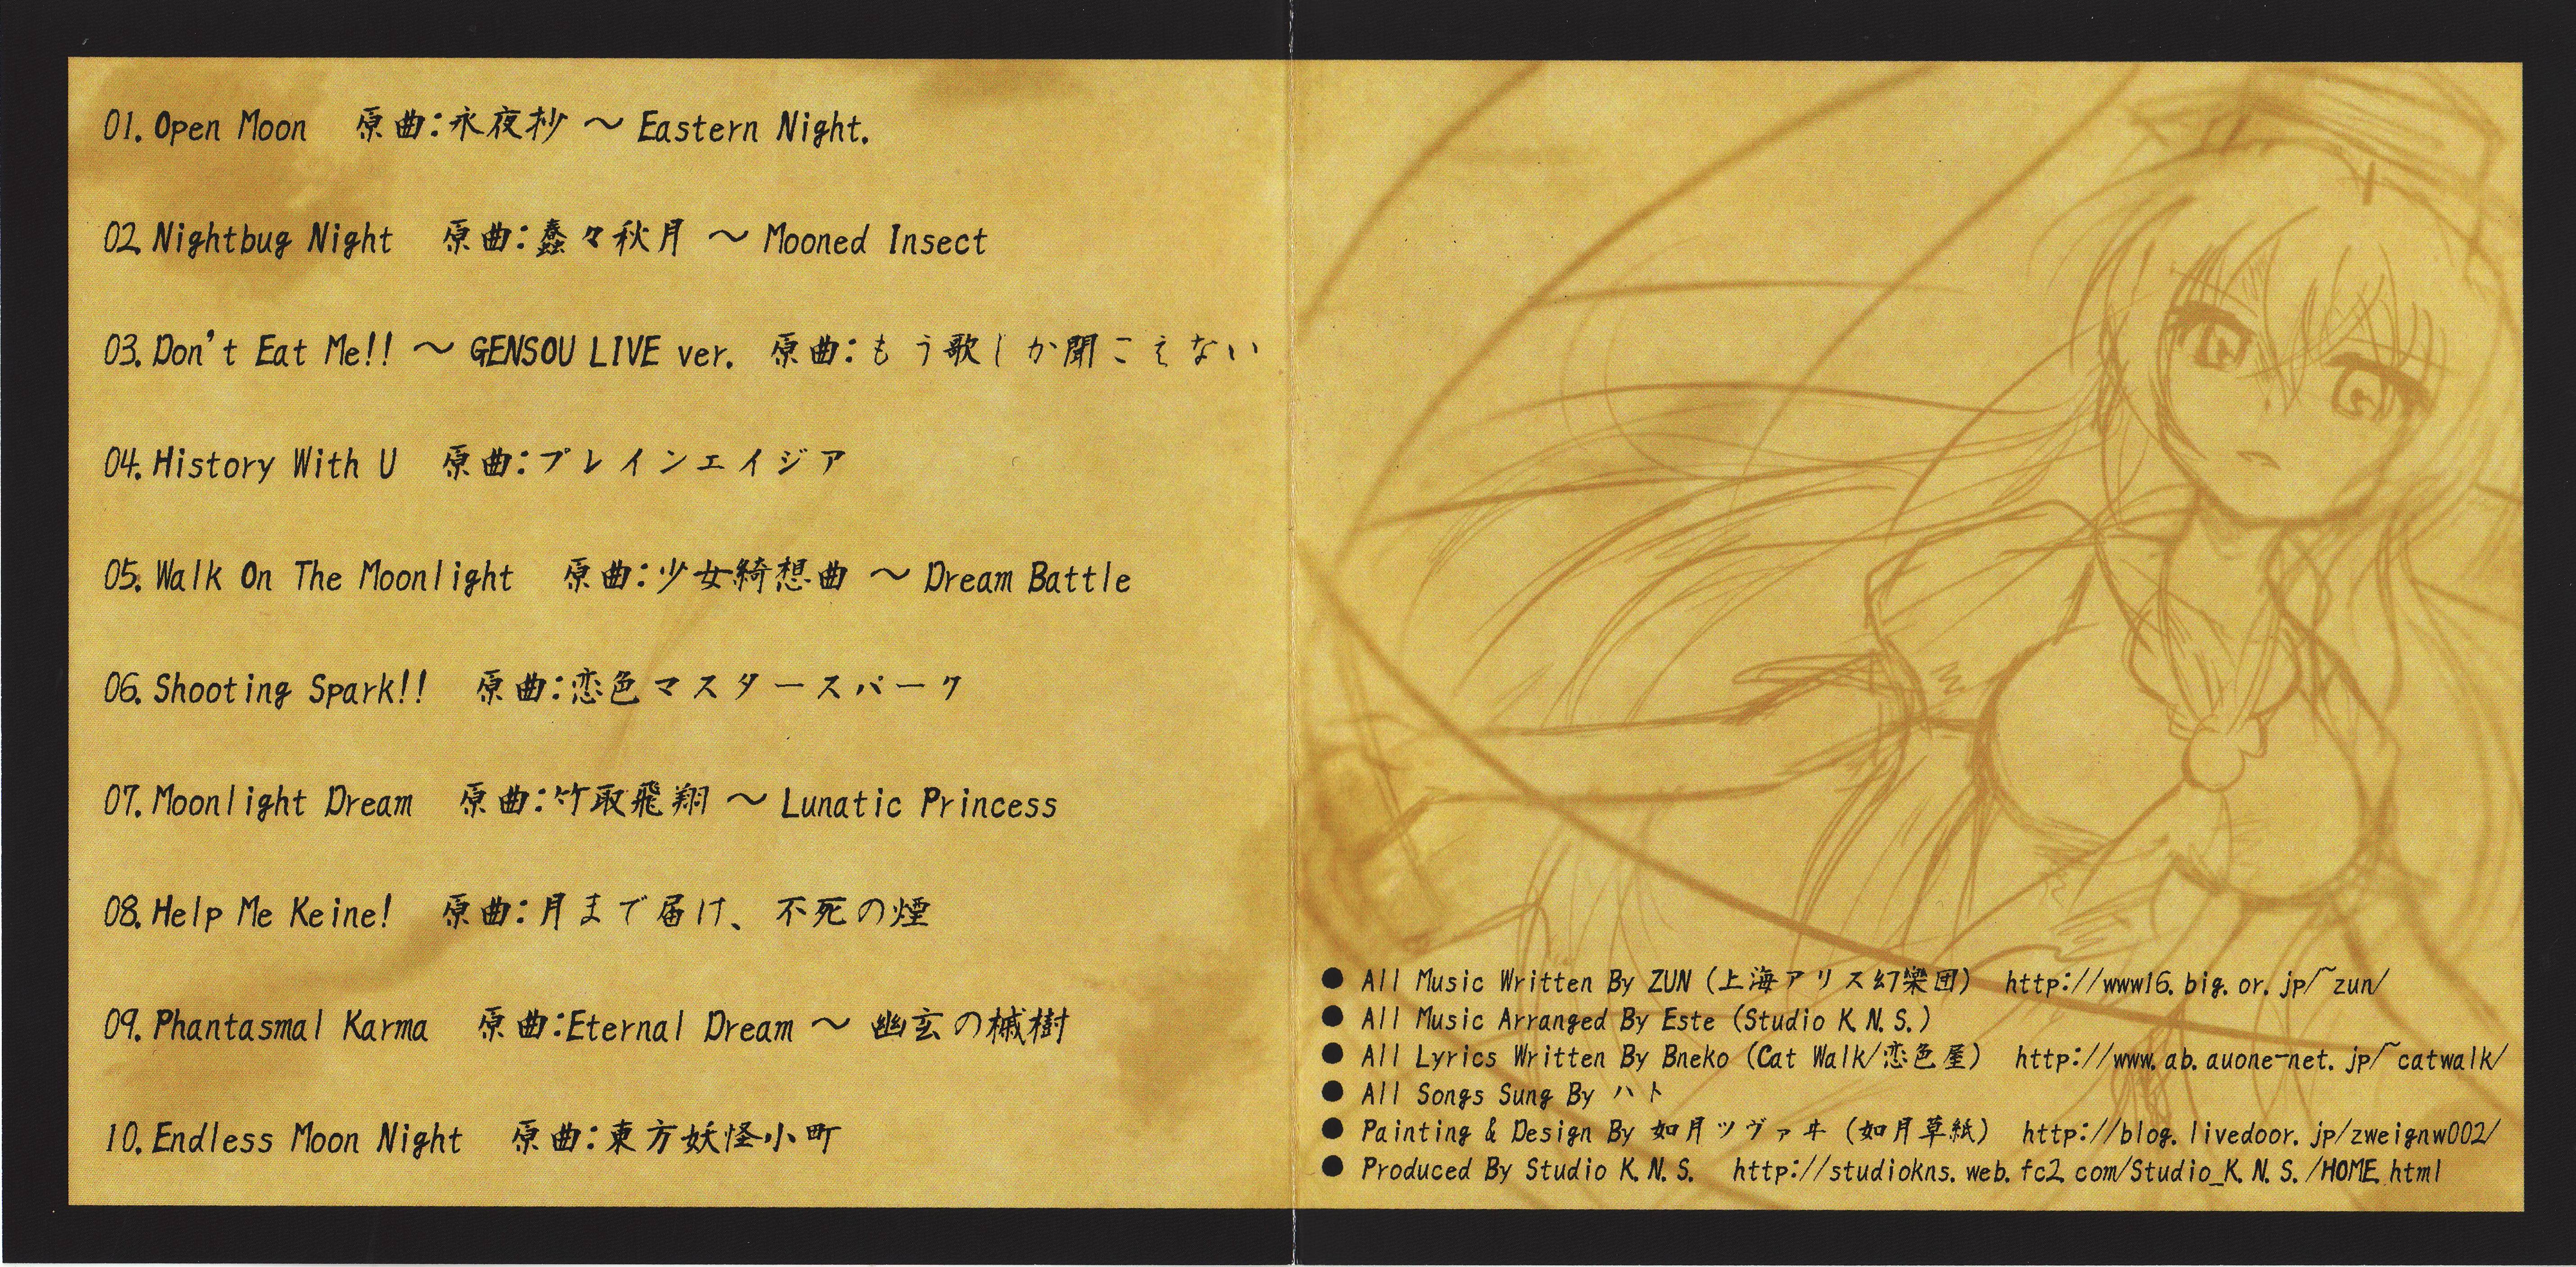 01. Open Moon 原曲：永夜抄 ～ Eastern Night.
02. Nightbug Night 原曲：蠢々秋月 ～ Mooned Insect
03. Don't Eat Me!! ～ GENSOU LIVE ver. 原曲：もう歌しか聞こえない
04. History With U 原曲：プレインエイジア
05. Walk On The Moonlight 原曲：少女綺想曲 ～ Dream Battle
06. Shooting Spark!! 原曲：恋色マスタースパーク
07. Moonlight Dream 原曲：竹取飛翔 ～ Lunatic Princess
08. Help Me Keine! 原曲：月まで届け、不死の煙
09. Phantasmal Karma 原曲：Eternal Dream ～ 幽玄の槭樹
10. Endless Moon Night 原曲：東方妖怪小町
● All Music Written By ZUN (上海アリス幻樂団) http://www16.big.or.jp/~zun/
● All Music Arranged By Este (Studio K.N.S.)
● All Lyrics Written By Bneko (Cat Walk/恋色屋) http://www.ab.auone-net.jp/~catwalk/
● All Songs Sung By ハト
● Painting & Design By 如月ツヴァヰ (如月草紙) http://blog.livedoor.jp/zweignw002/
● Produced By Studio K.N.S. http://studiokns.web.fc2.com/Studio_K.N.S./HOME.html